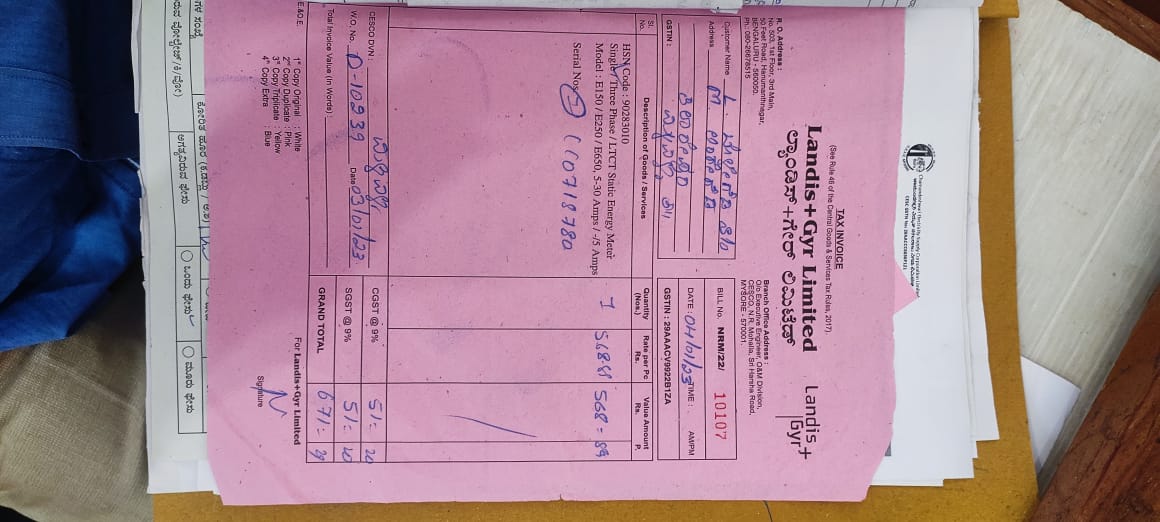 TAX INVOICE
(See Rule 46 of the Central Goods & Services Tax Rules, 2017).
Landis+Gyr Limited
ಲ್ಯಾಂಡಿಸ್+ಗೇರ್ ಲಿಮಿಟೆಡ್
Landis+
Gyr
R. O. Address :
No. 503, 1st Floor, 3rd Main,
50 Feet Road, Hanumanthnagar,
BENGALURU - 560050.
Ph: 080-26678515
Branch Office Address :
O/o Executive Engineer, O&M Division,
CESCO, N.R. Mohalla, Sri Harsha Road,
MYSORE - 570001.
Customer Name
Address
GSTIN :
BILL No. NRM/22/ 10107
DATE : 04/01/23 TIME : AM/PM
GSTIN : 29AAACV9922B1ZA
Sl. No. Description of Goods / Services Quantity (Nos.) Rate per Pc Rs. Value Amount Rs. P.
HSN Code : 90283010
Single / Three Phase / LTCT Static Energy Meter
Model : E150 / E250 / E650, 5-30 Amps / -/5 Amps
1 568=89
Serial Nos.
CESCO DVN :
W.O. No. D-10239 Date 03/01/23
CGST @ 9% 51= 20
SGST @ 9% 51= 20
Total Invoice Value (in Words) :
GRAND TOTAL 671= 29
E.&O.E.
1st Copy Original : White
2nd Copy Duplicate : Pink
3rd Copy Triplicate : Yellow
4th Copy Extra : Blue
For Landis+Gyr Limited
Signature
Chamundeshwari Electricity Supply Corporation Limited
ಒಂದು ಫೇಸು
ಮೂರು ಫೇಸು